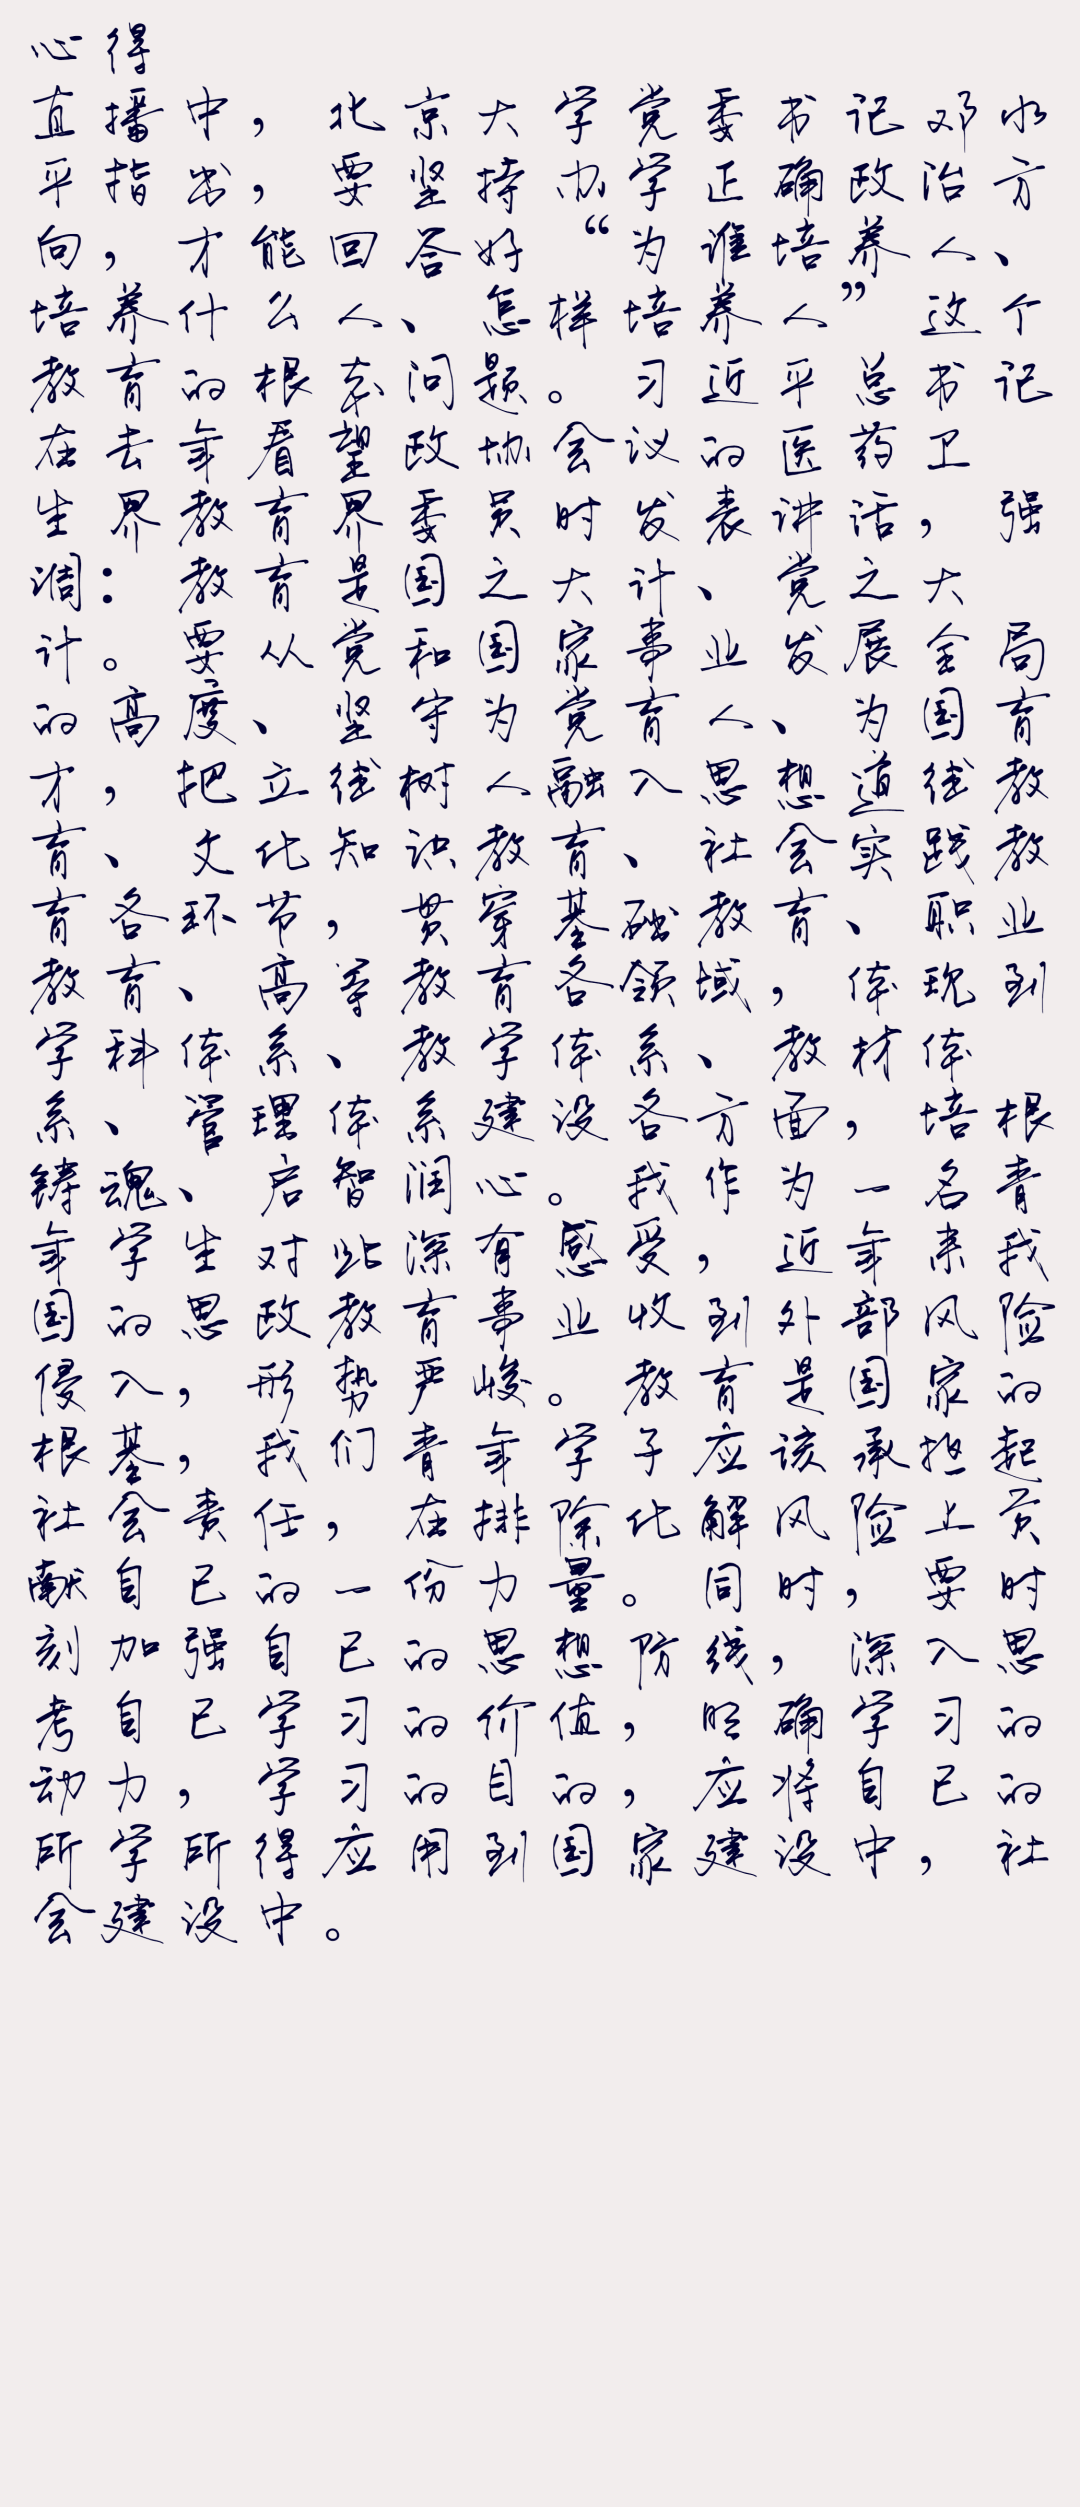 心得
直播中，北京大学党委书记邓水
平指出，要坚持办学正确政治方
向，才能回答好“为谁培养人、
培养什么人、怎样培养人”这个
教育的根本问题。习近平总书记
在去年看望政协会议的医药卫
生界教育界委员时发表讲话，强
调：教育是国之大计、党之大
计。要从党和国家事业发展全局
的高度、坚守为党育人、为国育
才，把立德树人融入思想道德教
育、文化知识教育、社会实践教
育各环节，贯穿基础教育、职业
教育、高等教育各领域，体现到
学科体系、教学体系、教材体
系、管理体系建设各方面，培根
铸魂、启智润心。我作为一名青
年学生对此深有感受，近年来我
国的思政教育事业收到外部风险
侵入，形势严峻。教育是国家的
根基，我们青年学子应该承担起
社会责任，在排除化解风险上贡
献自己的一份力量。同时，要时
刻加强自己的思想防线，深入思
考自己学习的价值，明确学习的
动力，学习的目的，应将自己的
所学所得应用到国家建设中，社
会建设中。